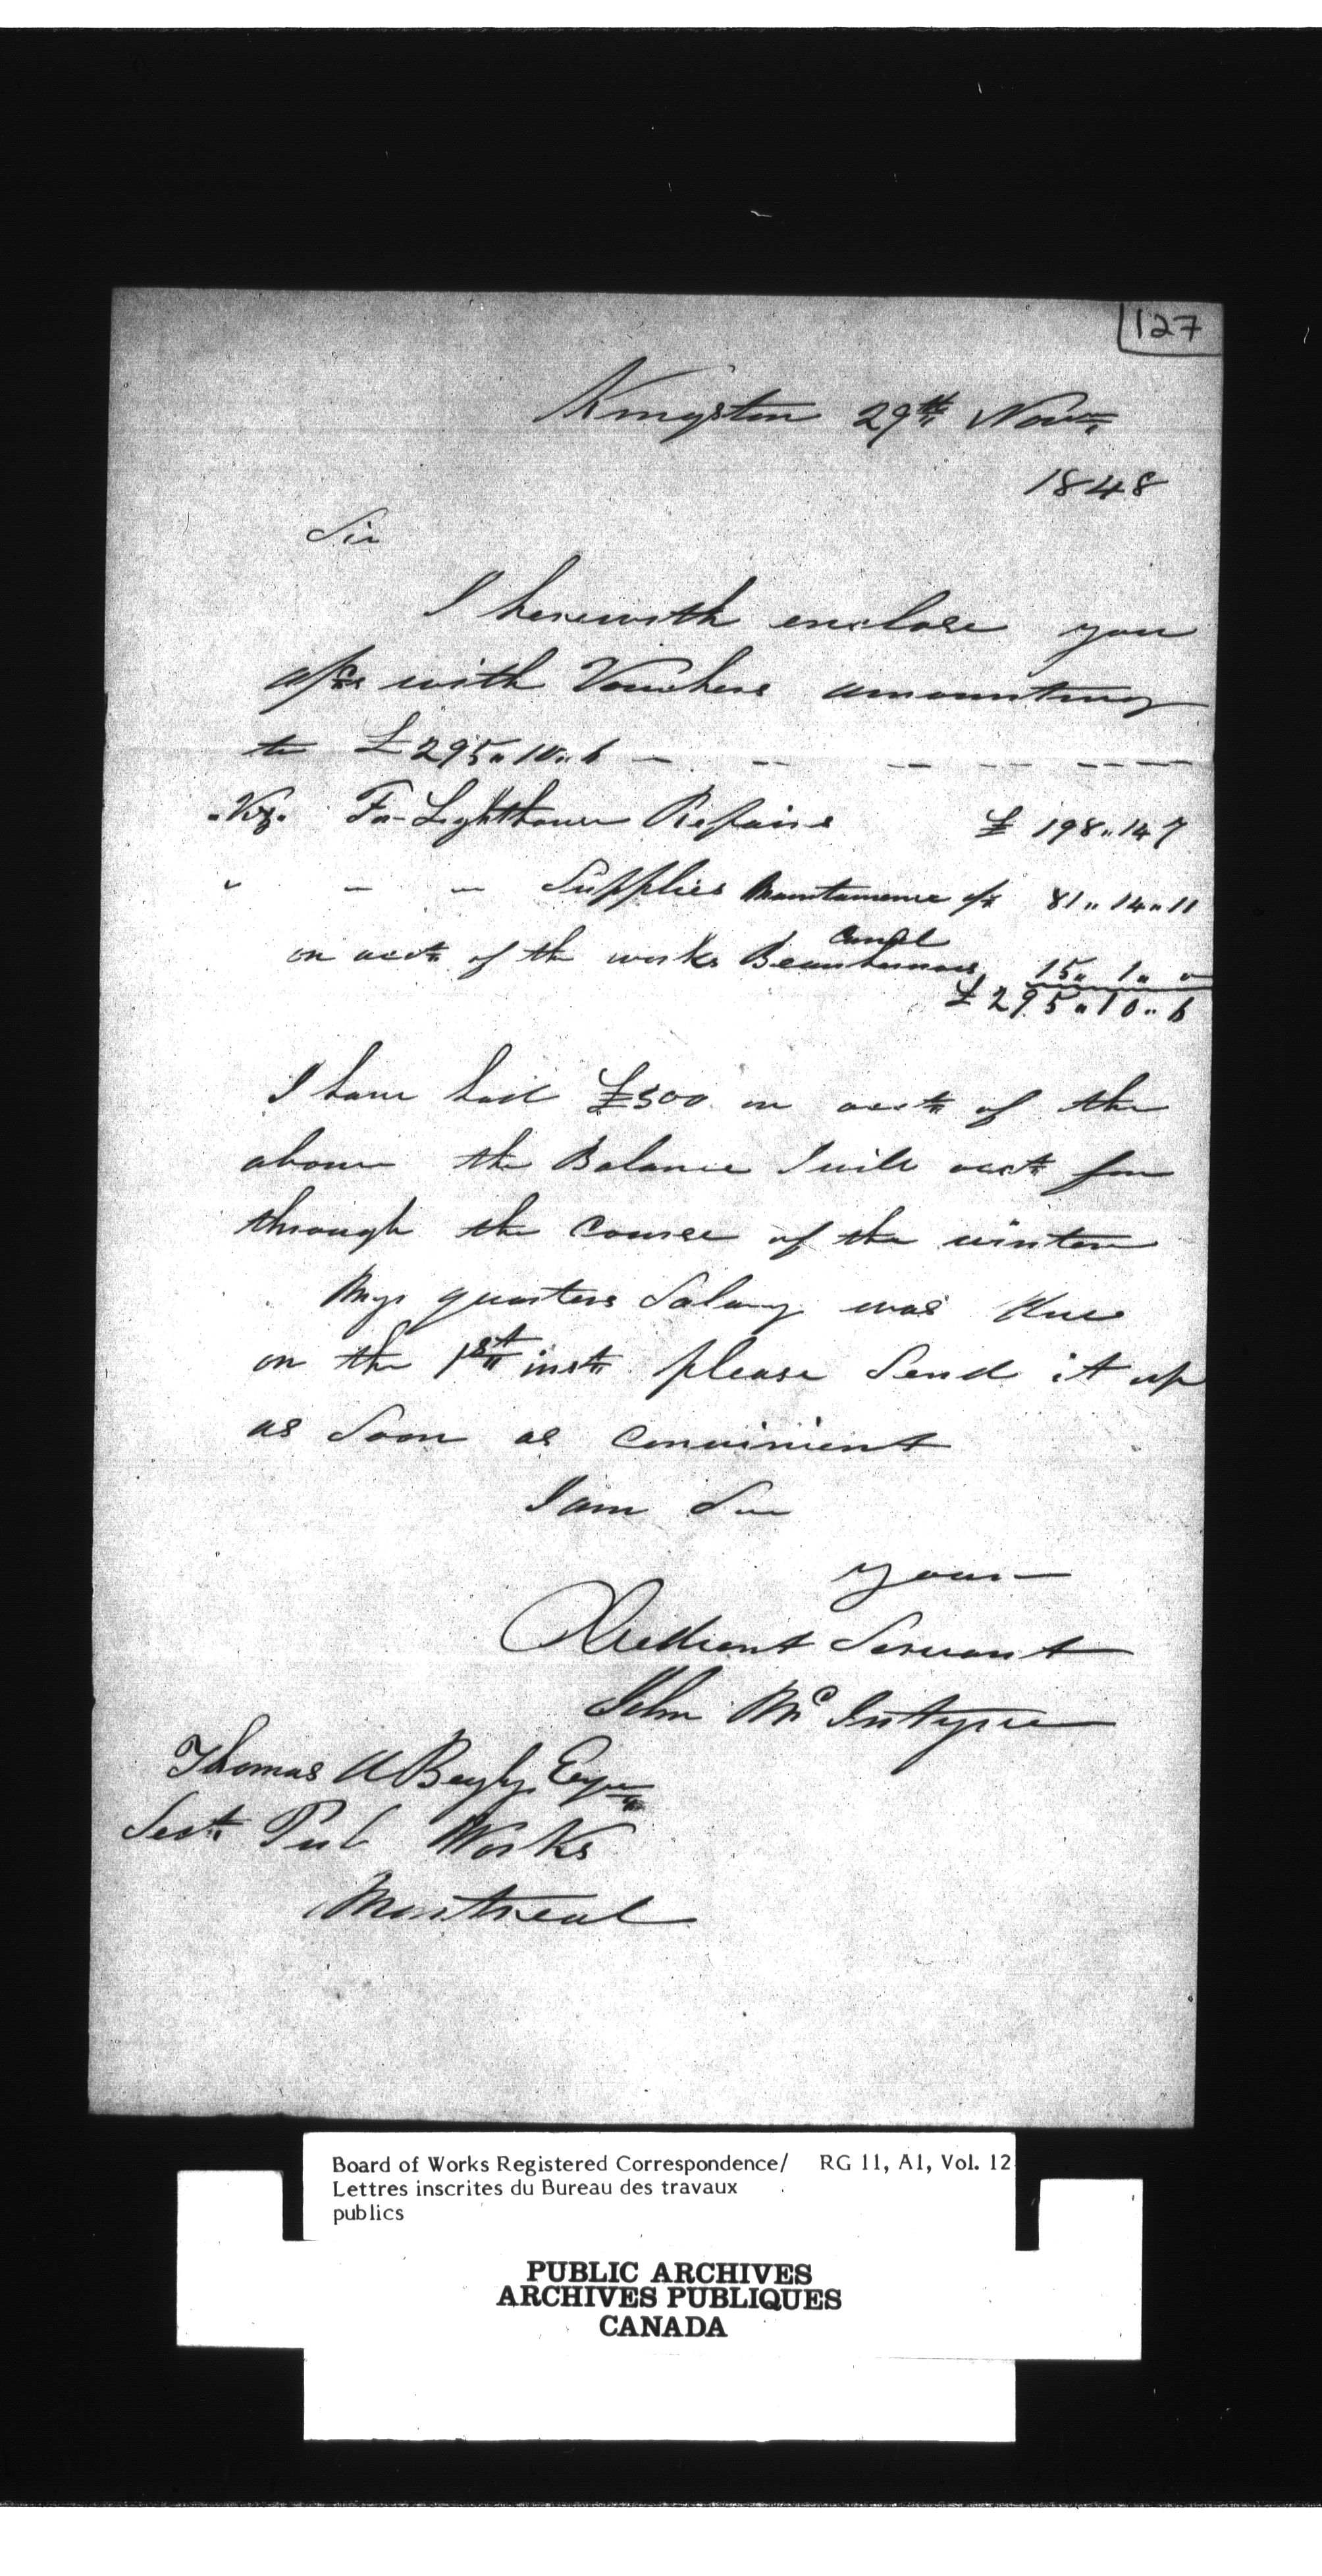 127
Kingston 29th Novr
1848
Sir
I herewith enclose you
a/cs with Vouchers amounting
to £295,,10,,6 — — — — — —
Viz. For Lighthouse Repairs £ 198,,14 7
" — — Supplies Maintainence a/c 81,,14,,11
Canal
on acct of the works Beauharnois 15,, 1,, 0
£295,,10,,6
I have had £500 on acct of the
above the Balance I will acct for
through the course of the winter
My quarters Salary was due
on the 1st inst please Send it up
as Soon as convinient
I am Sir
your
Obedient Servant
John Mc Intyre
Thomas A Begly Esqr
Sect Pub Works
Montreal
Board of Works Registered Correspondence/ RG 11, A1, Vol. 12
Lettres inscrites du Bureau des travaux
publics
PUBLIC ARCHIVES
ARCHIVES PUBLIQUES
CANADA